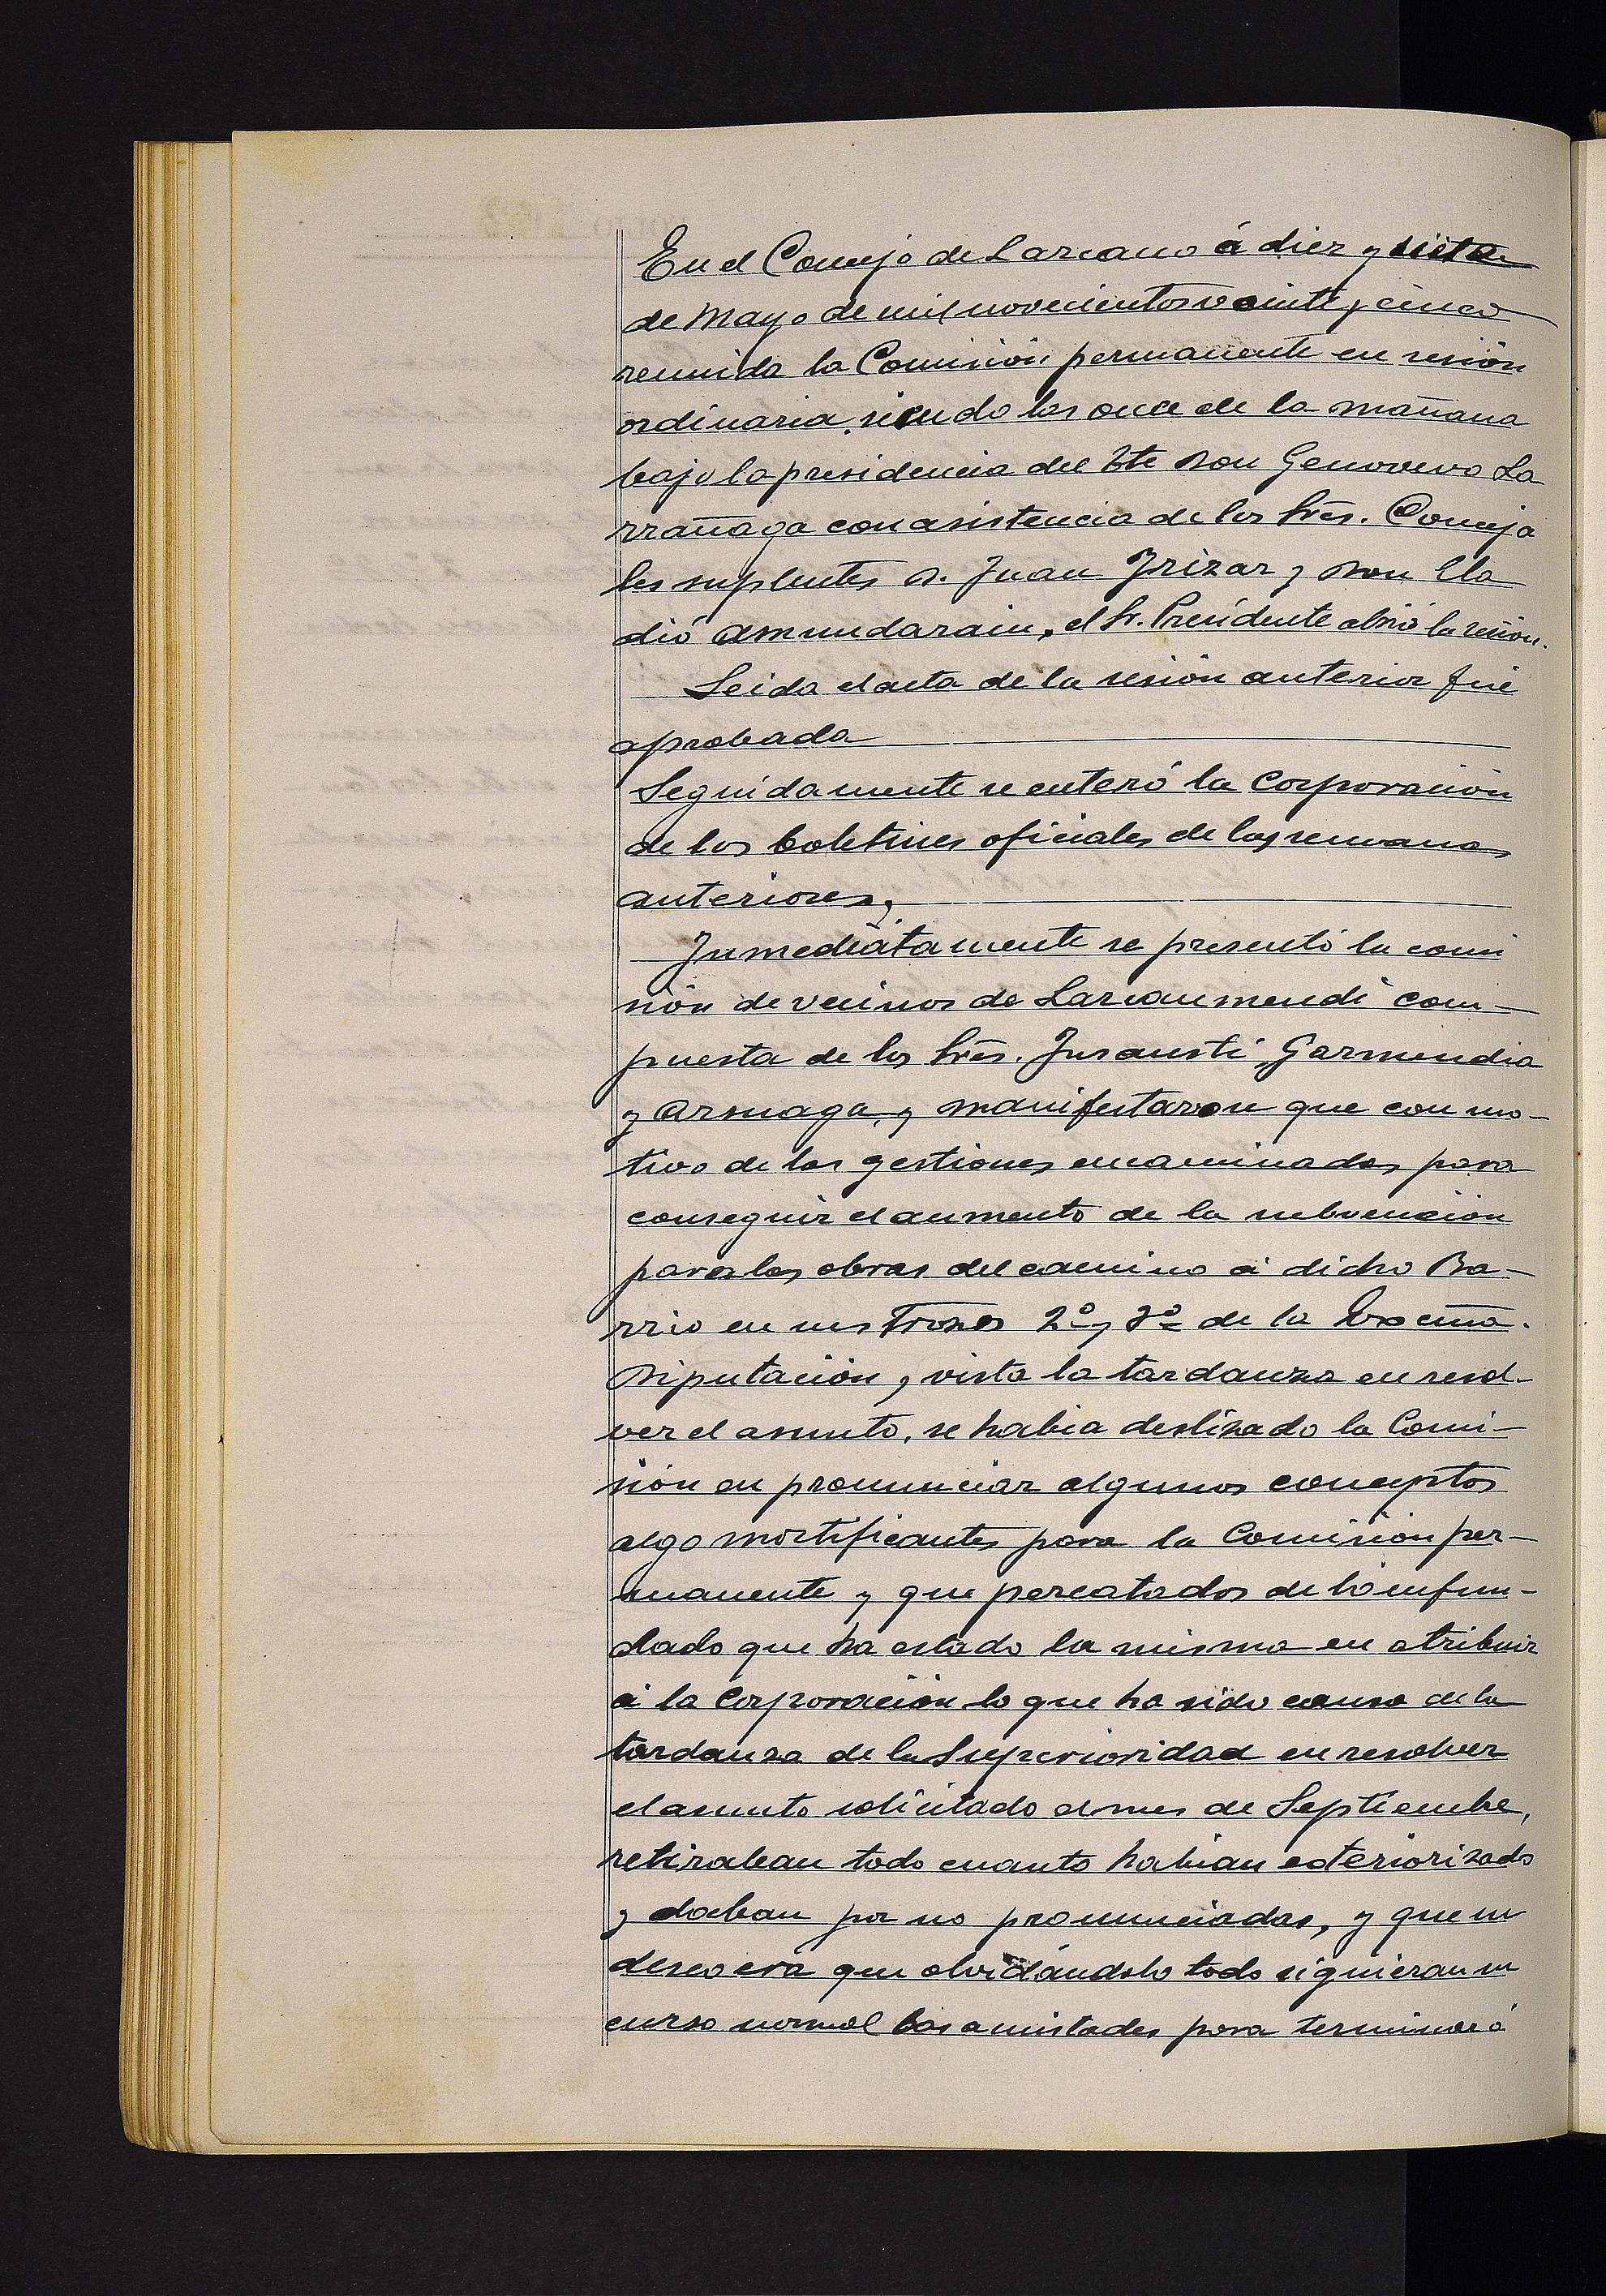 En el Concejo de Lazcano á diez y siete
de Mayo de mil novecientos veinte y cinco
reunida la Comisión permanente en sesión
ordinaria, siendo las once de la mañana
bajo la presidencia del Tte Don Genovevo La
rrañaga con asistencia de los Srēs. Conceja
les suplentes D. Juan Irizar y Don Cla
dió Amundarain, el Sr. Presidente abrió la sesión.
Leida el acta de la sesión anterior fué
aprobada
Seguidamente se enteró la Corporación
de los boletines oficiales de las semanas
anteriores,
Inmediatamente se presentó la comi
sión de vecinos de Lazcaumendi com-
puesta de los Srēs. Insausti, Garmendia
y Arsuaga, y manifestaron que con mo-
tivo de las gestiones encaminadas para
conseguir el aumento de la subvención
para las obras del camino á dicho Ba-
rrio en sus Trozos 2º y 3º de la Excmā.
Diputación, vista la tardanza en resol-
ver el asunto, se habia deslizado la Comi-
sión en pronunciar algunos conceptos
algo mortificantes para la Comisión per-
manente y que percatados de lo infun-
dado que ha estado la misma en atribuir
á la Corporación lo que ha sido causa de la
tardanza de la Superioridad en resolver
el asunto solicitado el mes de Septiembre,
retiraban todo cuanto habian esteriorizado
y daban por no pronunciadas, y que su
deseo era que olvidándolo todo siguieran su
curso normal las amistades para terminar á